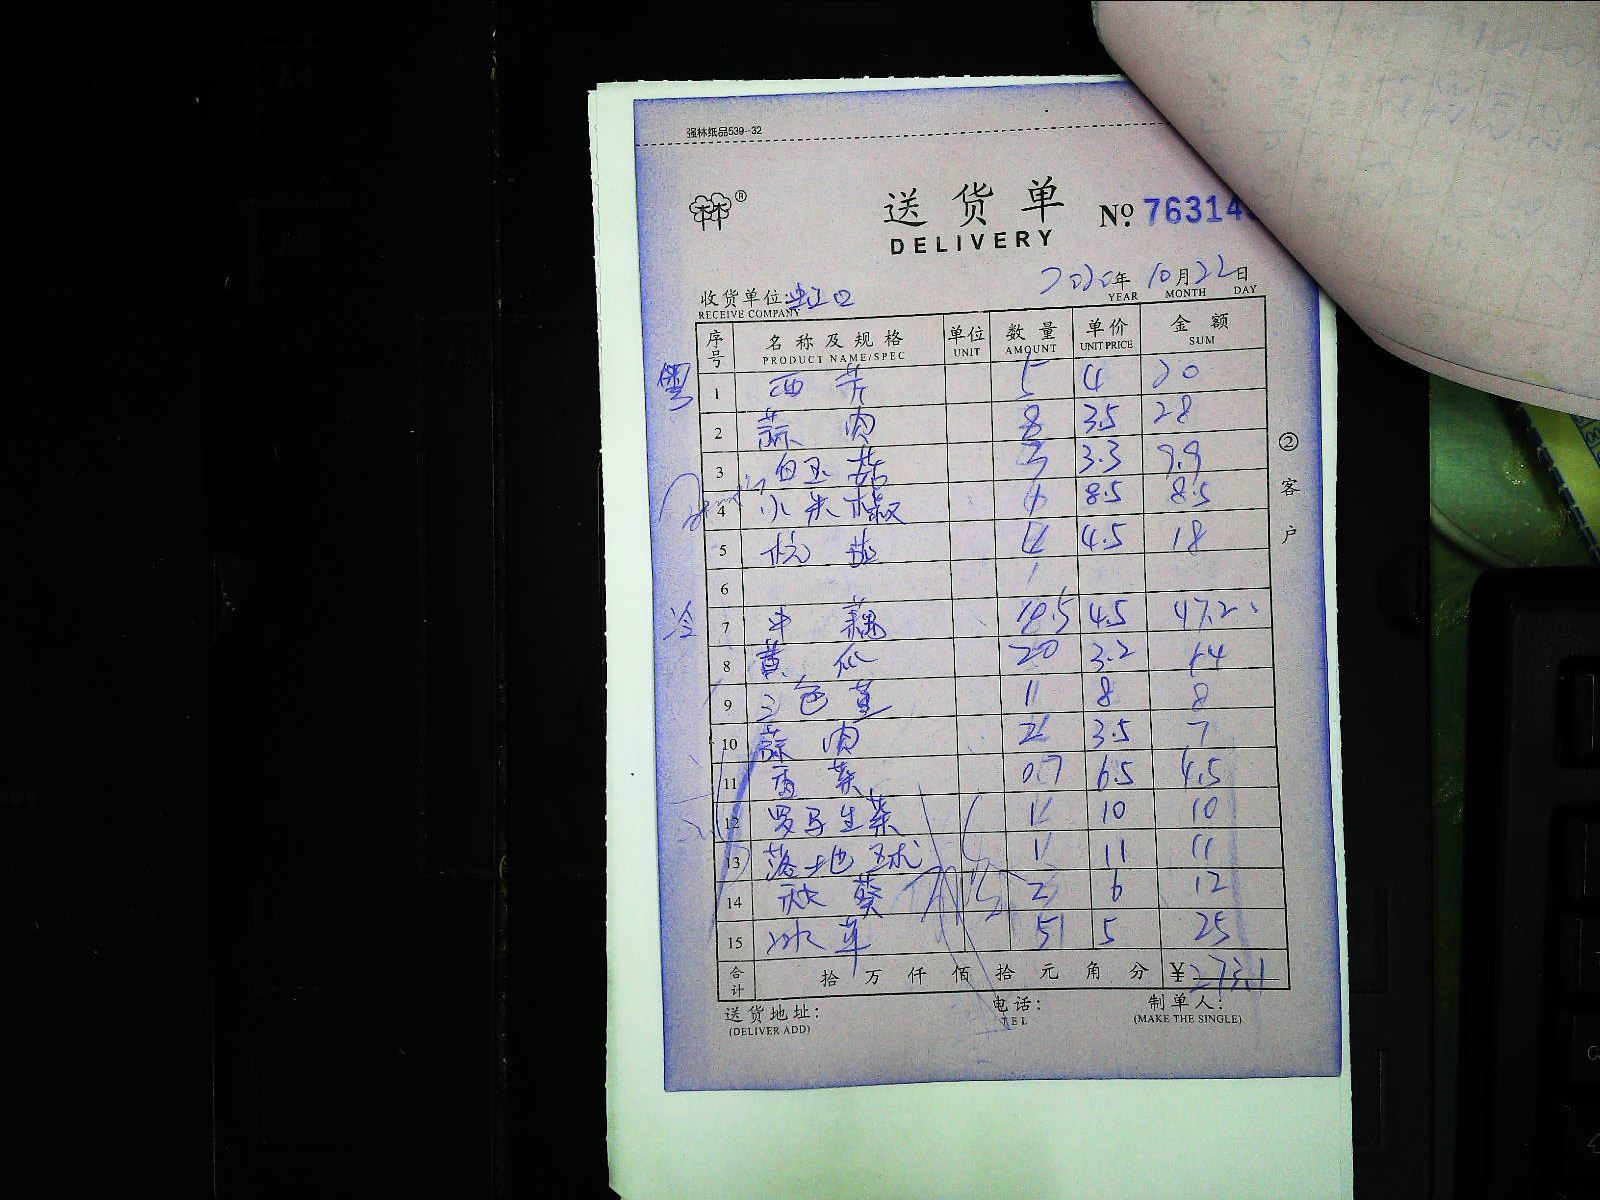 强林纸品539--32
送货单
DELIVERY
No. 76314
2020年 10月22日
YEAR MONTH DAY
收货单位: 虹口
RECEIVE COMPANY
序号 名称及规格 单位 数量 单价 金额
PRODUCT NAME/SPEC UNIT AMOUNT UNIT PRICE SUM
粤
1 西芹 5 4 20
2 蒜肉 8 3.5 28
3 白玉菇 3 3.3 9.9
4 小米椒 1 8.5 8.5
5 4 4.5 18
6
冷
7 藕 10.5 4.5 47.2
8 黄瓜 20 3.2 64
9 三色堇 1 8 8
10 蒜肉 2 3.5 7
11 香菜 0.7 6.5 4.5
12 罗马生菜 1 10 10
13 落地球 1 11 11
14 秋葵 2 6 12
15 冰草 5 5 25
合计 拾万仟佰拾元角分 ¥ 273.1
送货地址: 电话: 制单人:
(DELIVER ADD) TEL (MAKE THE SINGLE)
②客户